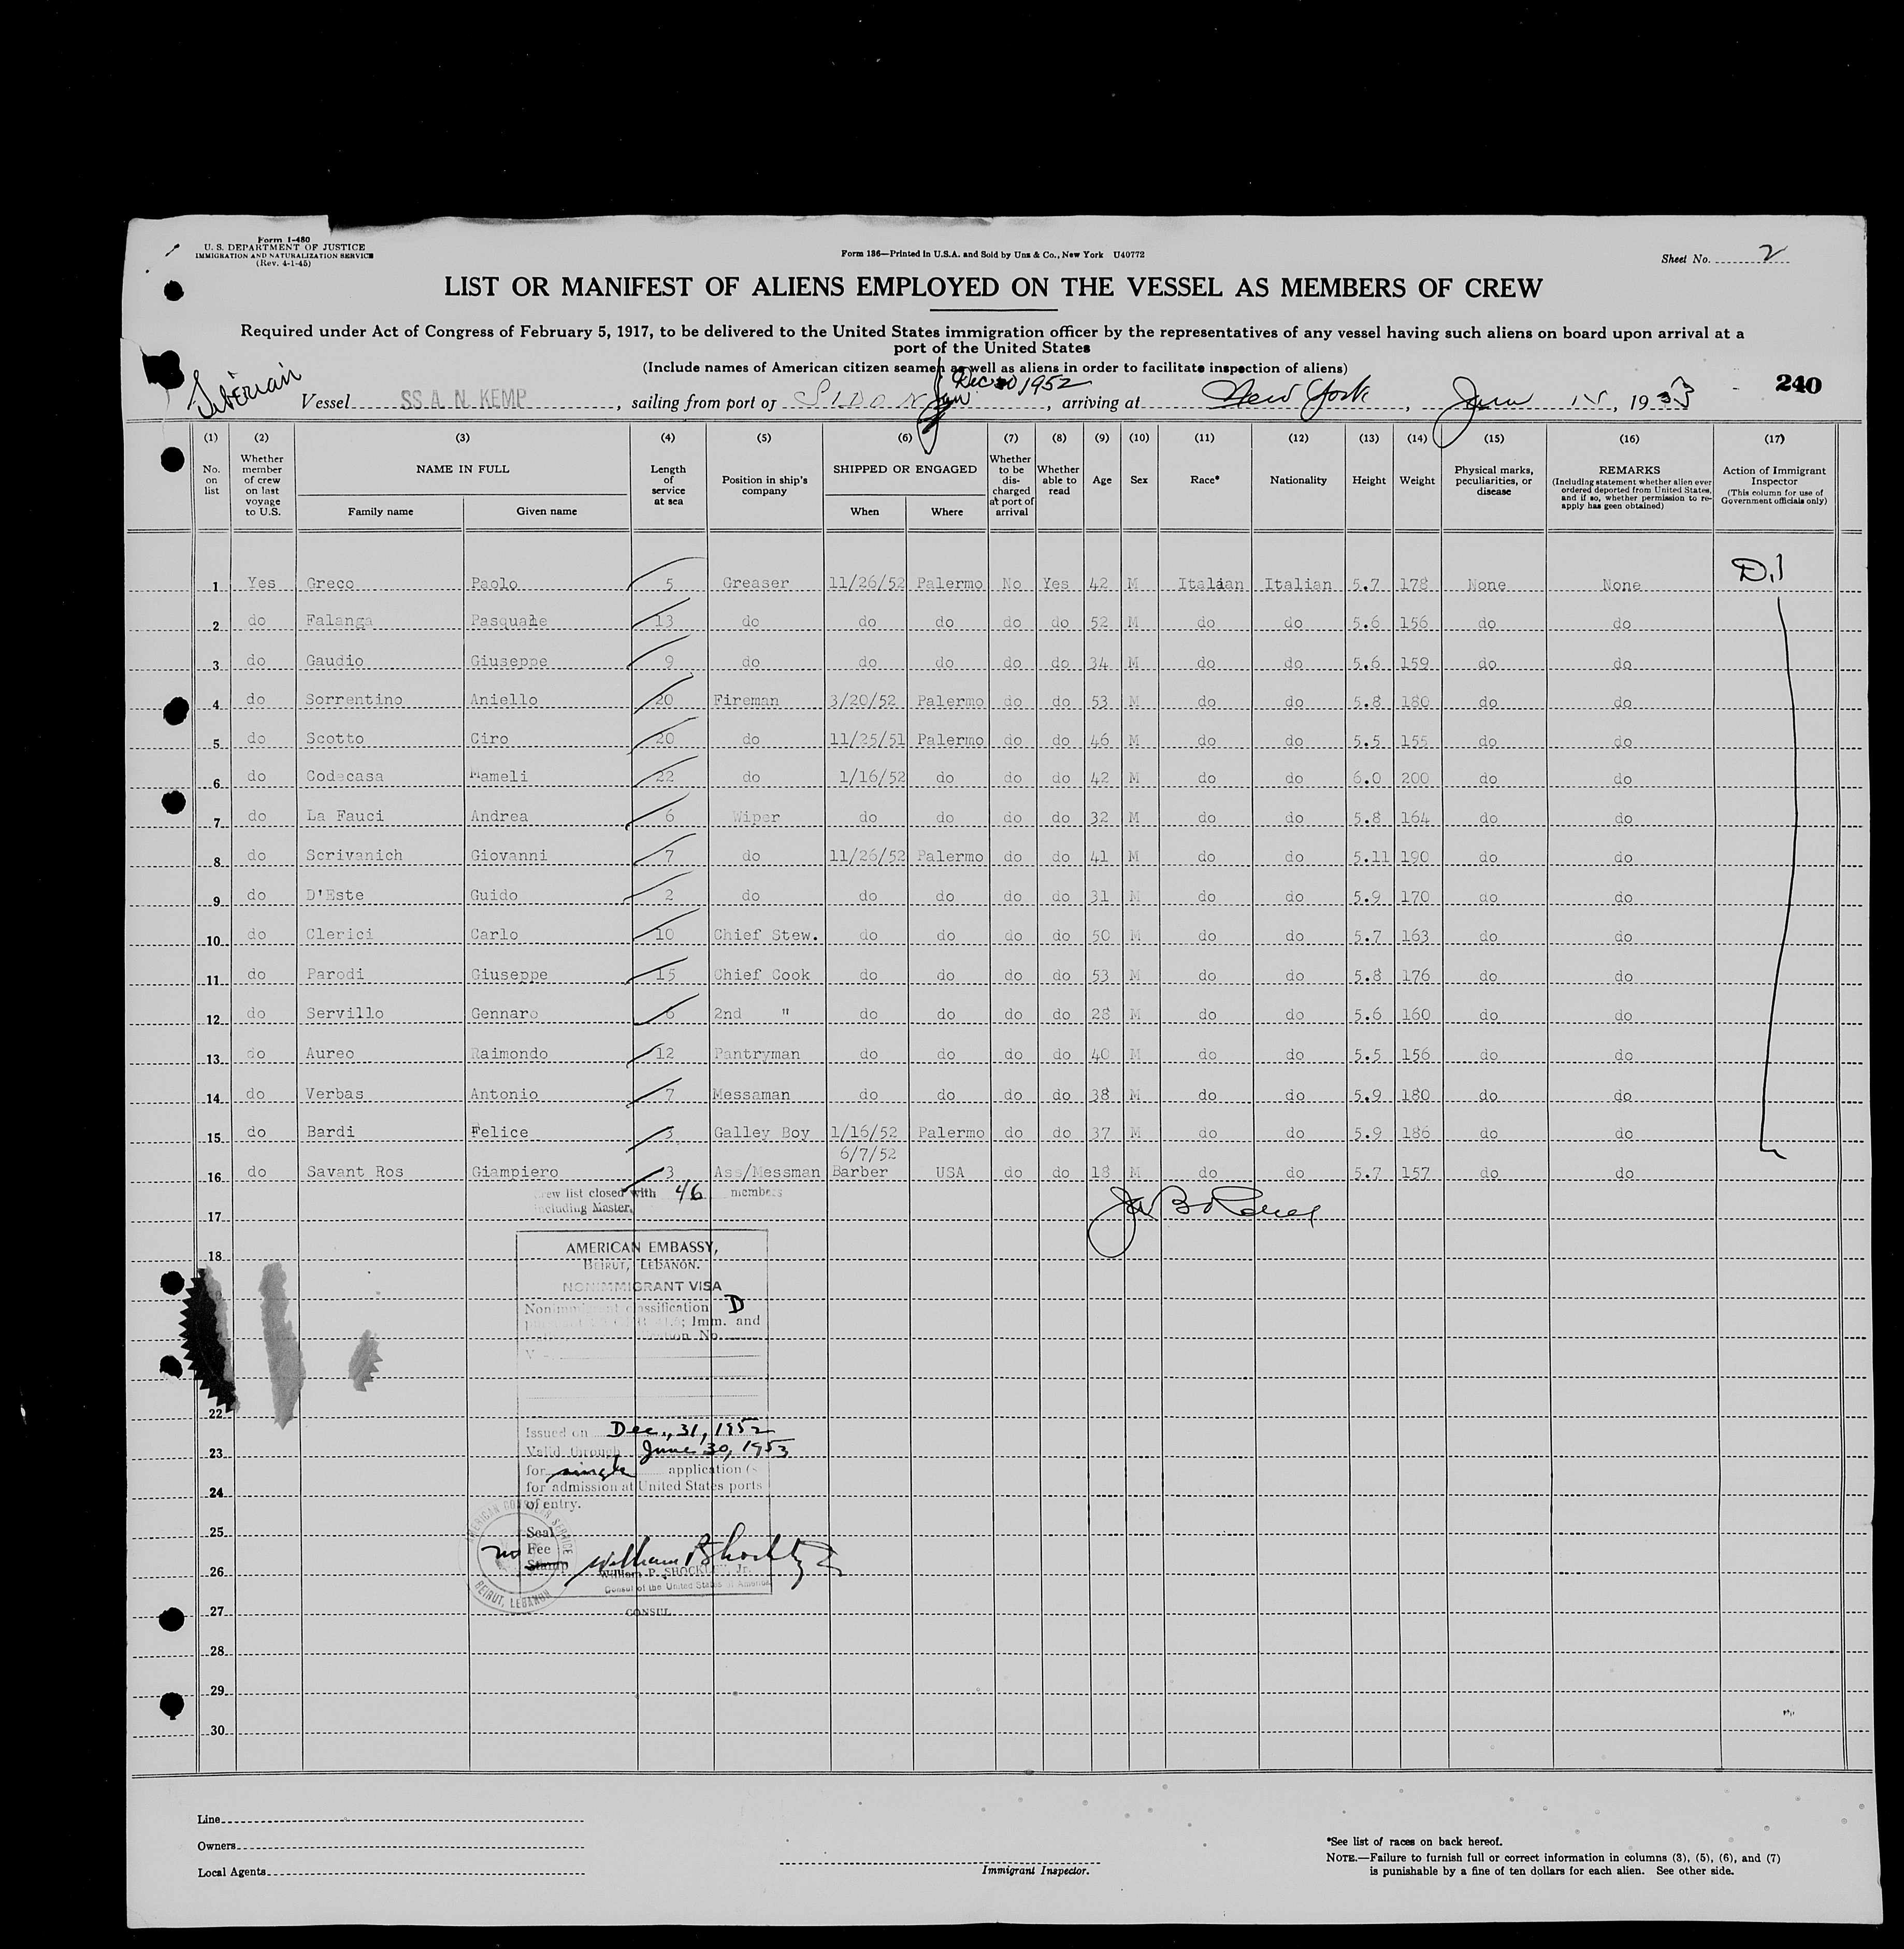 Form I-480
U. S. DEPARTMENT OF JUSTICE
IMMIGRATION AND NATURALIZATION SERVICE
(Rev. 4-1-45)
Form 186—Printed in U.S.A. and Sold by Unz & Co., New York U40772
Sheet No. 2
LIST OR MANIFEST OF ALIENS EMPLOYED ON THE VESSEL AS MEMBERS OF CREW
Required under Act of Congress of February 5, 1917, to be delivered to the United States immigration officer by the representatives of any vessel having such aliens on board upon arrival at a
port of the United States
(Include names of American citizen seamen as well as aliens in order to facilitate inspection of aliens)
Liberian
Dec 30 1952
240
Vessel SS A. N. KEMP, sailing from port of SIDON Jan, arriving at New York, Jan 15, 1953
(1) (2) (3) (4) (5) (6) (7) (8) (9) (10) (11) (12) (13) (14) (15) (16) (17)
No. on list
Whether member of crew on last voyage to U.S.
NAME IN FULL
Family name Given name
Length of service at sea
Position in ship's company
SHIPPED OR ENGAGED
When Where
Whether to be discharged at port of arrival
Whether able to read
Age
Sex
Race*
Nationality
Height
Weight
Physical marks, peculiarities, or disease
REMARKS
(Including statement whether alien ever ordered deported from United States, and if so, whether permission to re-apply has geen obtained)
Action of Immigrant Inspector
(This column for use of Government officials only)
1 Yes Greco Paolo 5 Greaser 11/26/52 Palermo No Yes 42 M Italian Italian 5.7 178 None None D.1
2 do Falanga Pasquale 13 do do do do do 52 M do do 5.6 156 do do
3 do Gaudio Giuseppe 9 do do do do do 34 M do do 5.6 159 do do
4 do Sorrentino Aniello 20 Fireman 3/20/52 Palermo do do 53 M do do 5.8 180 do do
5 do Scotto Ciro 20 do 11/25/51 Palermo do do 46 M do do 5.5 155 do do
6 do Codecasa Mameli 22 do 1/16/52 do do do 42 M do do 6.0 200 do do
7 do La Fauci Andrea 6 Wiper do do do do 32 M do do 5.8 164 do do
8 do Scrivanich Giovanni 7 do 11/26/52 Palermo do do 41 M do do 5.11 190 do do
9 do D'Este Guido 2 do do do do do 31 M do do 5.9 170 do do
10 do Clerici Carlo 10 Chief Stew. do do do do 50 M do do 5.7 163 do do
11 do Parodi Giuseppe 15 Chief Cook do do do do 53 M do do 5.8 176 do do
12 do Servillo Gennaro 6 2nd " do do do do 28 M do do 5.6 160 do do
13 do Aureo Raimondo 12 Pantryman do do do do 40 M do do 5.5 156 do do
14 do Verbas Antonio 7 Messaman do do do do 38 M do do 5.9 180 do do
15 do Bardi Felice 3 Galley Boy 1/16/52 Palermo do do 37 M do do 5.9 186 do do
6/7/52
16 do Savant Ros Giampiero 3 Ass/Messman Barber USA do do 18 M do do 5.7 157 do do
Crew list closed with 46 members
including Master.
17
AMERICAN EMBASSY,
18
BEIRUT, LEBANON.
NONIMMIGRANT VISA
Nonimmigrant classification D
Imm. and
No.
V
22
Issued on Dec., 31, 1952
Valid through June 30, 1953
23
for single application (s
for admission at United States ports
24
of entry.
AMERICAN CONSULAR SERVICE
BEIRUT, LEBANON
25
Seal
no Fee
Stamp
William P Shockley Jr
26
William P. SHOCKLEY, Jr.
Consul of the United States of America
27
CONSUL
28
29
30
Line
Owners
Local Agents
Immigrant Inspector.
*See list of races on back hereof.
NOTE.—Failure to furnish full or correct information in columns (3), (5), (6), and (7)
is punishable by a fine of ten dollars for each alien. See other side.